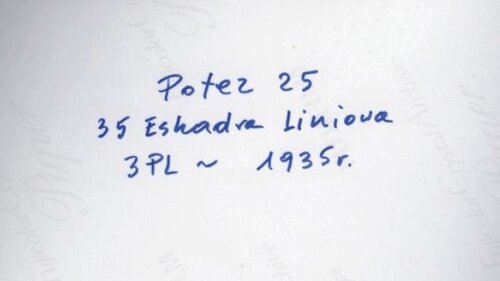 Potez 25
35 Eskadra Liniowa
3PL ~ 1935r.